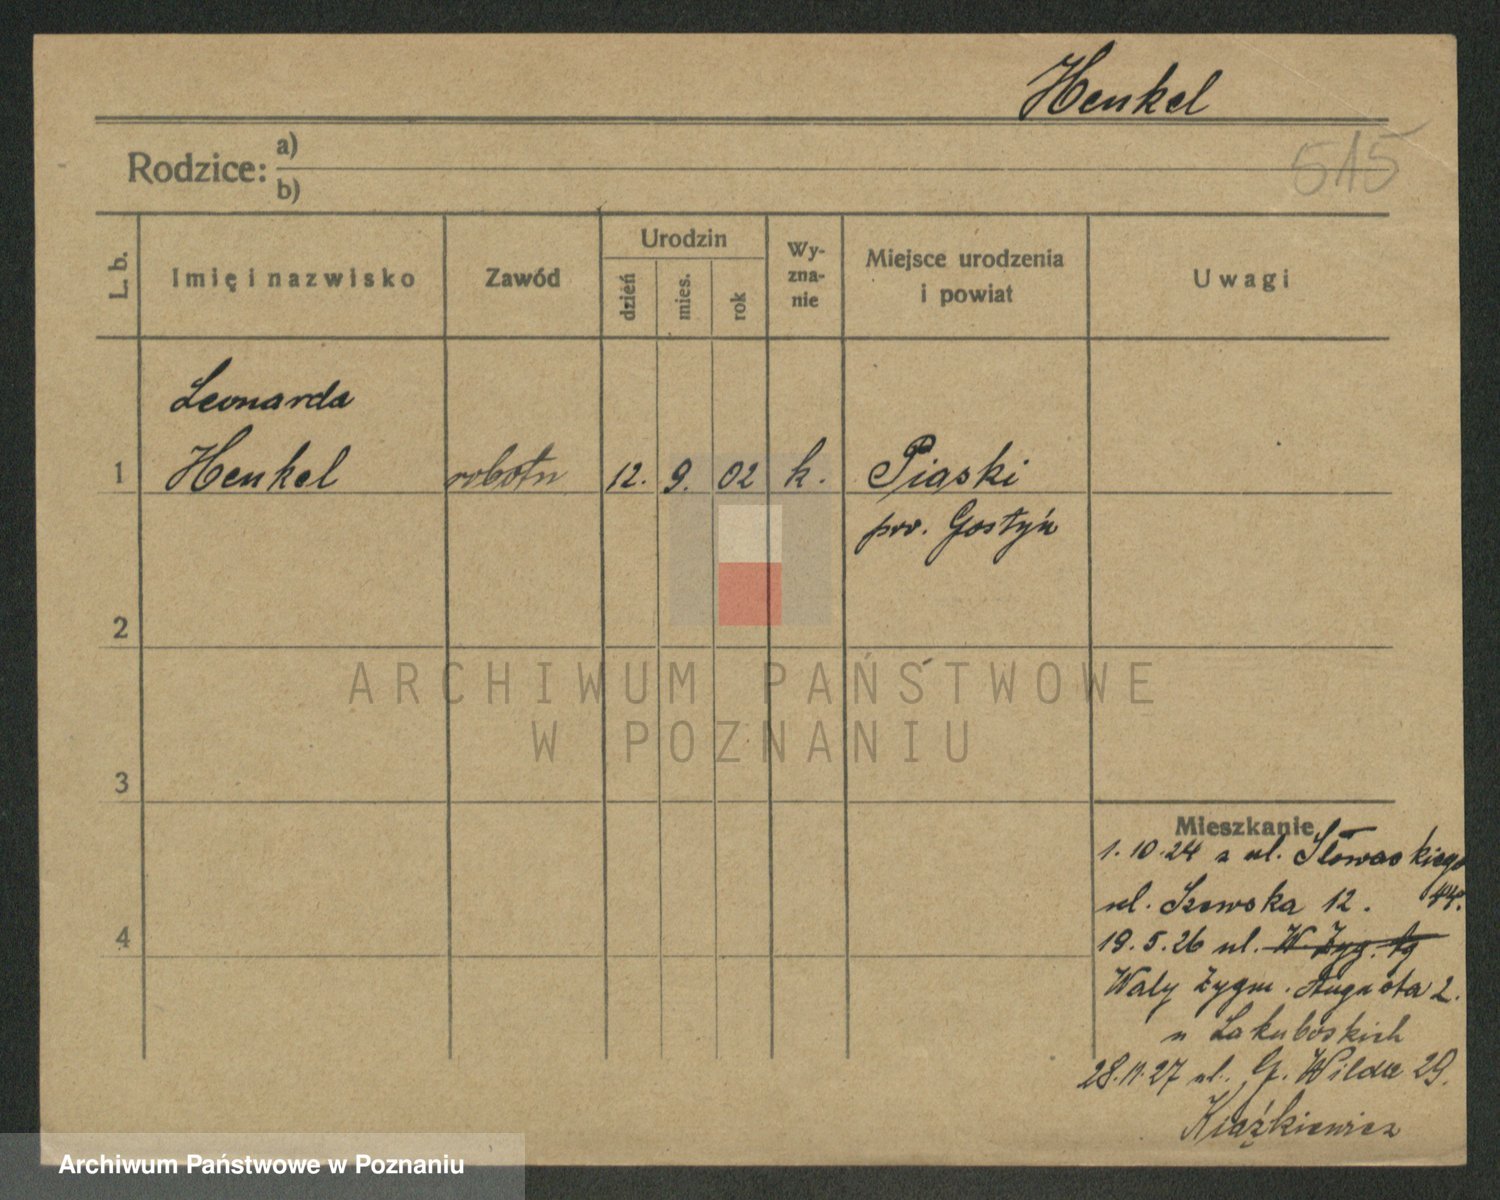 Henkel
515
Rodzice: a)
b)
L. b.
Imię i nazwisko
Zawód
Urodzin
dzień
mies.
rok
Wy-
zna-
nie
Miejsce urodzenia
i powiat
Uwagi
Leonarda
1 Henkel robotn 12. 9. 02 k. Piaski
pow. Gostyń
2
3
4
Mieszkanie
1.10.24 z ul. Słowackiego
44.
ul. Szewska 12.
19.5.26 ul. W Zyg. Ag
Wały Zygm. Augusta 2.
u Jakubóskich
28.11.27 ul. G. Wilda 29.
Książkiewicz
ARCHIWUM PAŃSTWOWE
W POZNANIU
Archiwum Państwowe w Poznaniu